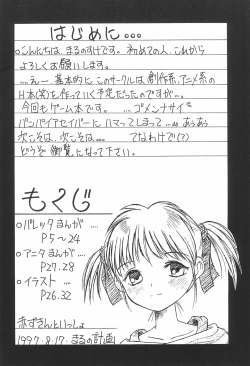 はじめに・・・
○こんにちは、まるのすけです。初めての人、これから
よろしくお願いします。
・・・・えー、基本的にこのサークルは創作系、アニメ系の
H本(笑)を作っていく予定だったのですが…。
今回もゲーム本です。・・・・ゴメンナサイ
バンパイアセイバーにハマってしまって・・・。あうあう
次こそは、次こそは・・・・ てなわけで(?)
どうぞ御覧になって下さい。
もくじ
○バレッタまんが ・・・・
P5〜24
○アニタまんが ・・・・
P27.28
○イラスト ・・・・
P26.32
赤ずきんといっしょ
1997・8・17・まるの計画